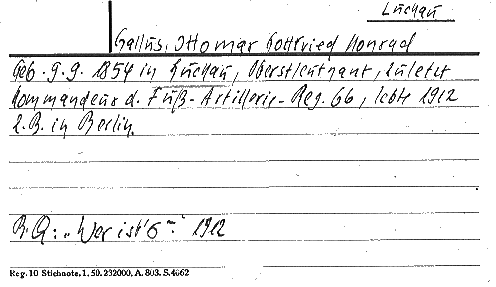 Luckau
Gallus, Ottomar Gottfried Konrad
Geb. 9.9. 1854 in Luckau, Oberstleutnant, zuletzt
Kommandeur d. Fuß-Artillerie-Reg. 66, lebte 1912
z.B. in Berlin.
B.Q: „Wer ist's" 1912
Reg. 10 Stichnote, 1. 50. 232000, A. 803. S. 4662